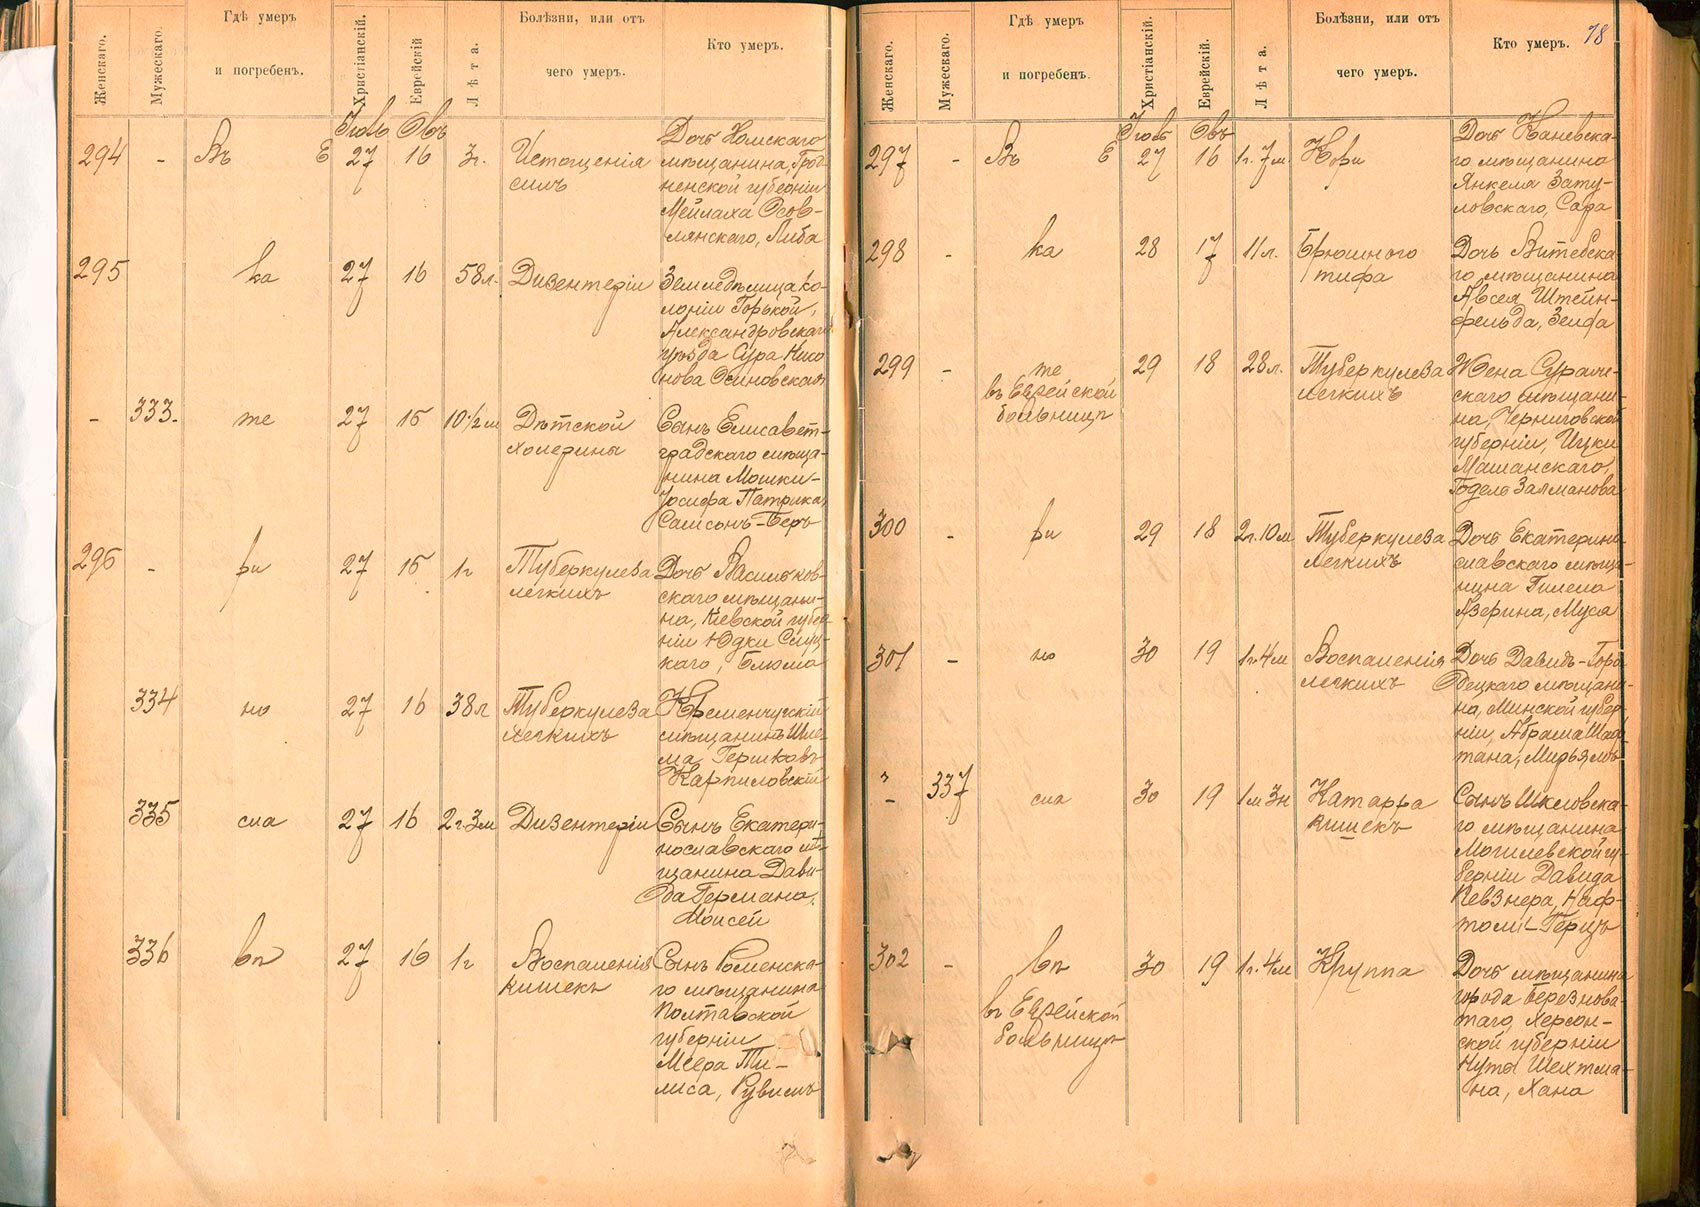 Женскаго.
Мужескаго.
Гдѣ умеръ
и погребенъ.
Христіанскій.
Еврейскій
Лѣта.
Болѣзни, или отъ
чего умеръ.
Кто умеръ.
Іюль Овъ
294 - Въ Е 27 16 3г. Истощенія
силъ
Дочь Хомскаго
мѣщанина, Грод-
ненской губерніи
Мейлаха Осов-
лянскаго, Либа
295 ка 27 16 58л. Дизентеріи
Земледѣлица ко-
лоніи Горькой,
Александровскаго
уѣзда Сура Нисо
нова Осиновская
- 333. те 27 16 10½м Дѣтской
холерины
Сынъ Елисавет-
градскаго мѣща-
нина Мошки-
Іосифа Патрика,
Самсонъ-Беръ
296 - ри 27 16 1г Туберкулеза
легкихъ
Дочь Васильков-
скаго мѣщани-
на, Кіевской губер
ніи Юдки Слуц-
каго, Блюма
334 но 27 16 38л Туберкулеза
легкихъ
Кременчугскій
мѣщанинъ Шле-
ма Гершковъ
Карпиловскій
335 сла 27 16 2г.3м Дизентеріи
Сынъ Екатери-
нославскаго мѣ-
щанина Дави-
да Германа,
Моисей
336 вѣ 27 16 1г Воспаленія
кишекъ
Сынъ Роменска-
го мѣщанина
Полтавской
губерніи
Меера Ти-
лиса, Рувимъ
78
Женскаго.
Мужескаго.
Гдѣ умеръ
и погребенъ.
Христіанскій.
Еврейскій.
Лѣта.
Болѣзни, или отъ
чего умеръ.
Кто умеръ.
Іюль Овъ
297 - Въ Е 27 16 1г.7м. Кори
Дочь Каневска-
го мѣщанина
Янкеля Зату-
ловскаго, Сара
298 - ка 28 17 11л. Брюшного
тифа
Дочь Витебска-
го мѣщанина
Авсея Штейн-
фельда, Зелда
299 - те 29 18 28л. Туберкулеза
въ Еврейской легкихъ
больницѣ
Жена Суражс-
скаго мѣщани-
на, Черниговской
губерніи, Ицки
Машанскаго,
Годель Залманова
300 - ри 29 18 2г.10м Туберкулеза
легкихъ
Дочь Екатерино-
славскаго мѣща-
нина Гилела
Азерина, Муся
301 - но 30 19 1г.4м Воспаленія
легкихъ
Дочь Давидъ-Горо
децкаго мѣщани-
на, Минской губер-
ніи, Абрама Шаф
тана, Мирьямъ
- 337 сла 30 19 1м 3н Катарра
кишекъ
Сынъ Шкловска-
го мѣщанина
Могилевской гу-
берніи Давида
Певзнера, Наф-
толи-Герцъ
302 - вѣ 30 19 1г.4м Круппа
въ Еврейской
больницѣ
Дочь мѣщанина
города Березнова-
таго, Херсон-
ской губерніи
Нута Шехтма-
на, Хана